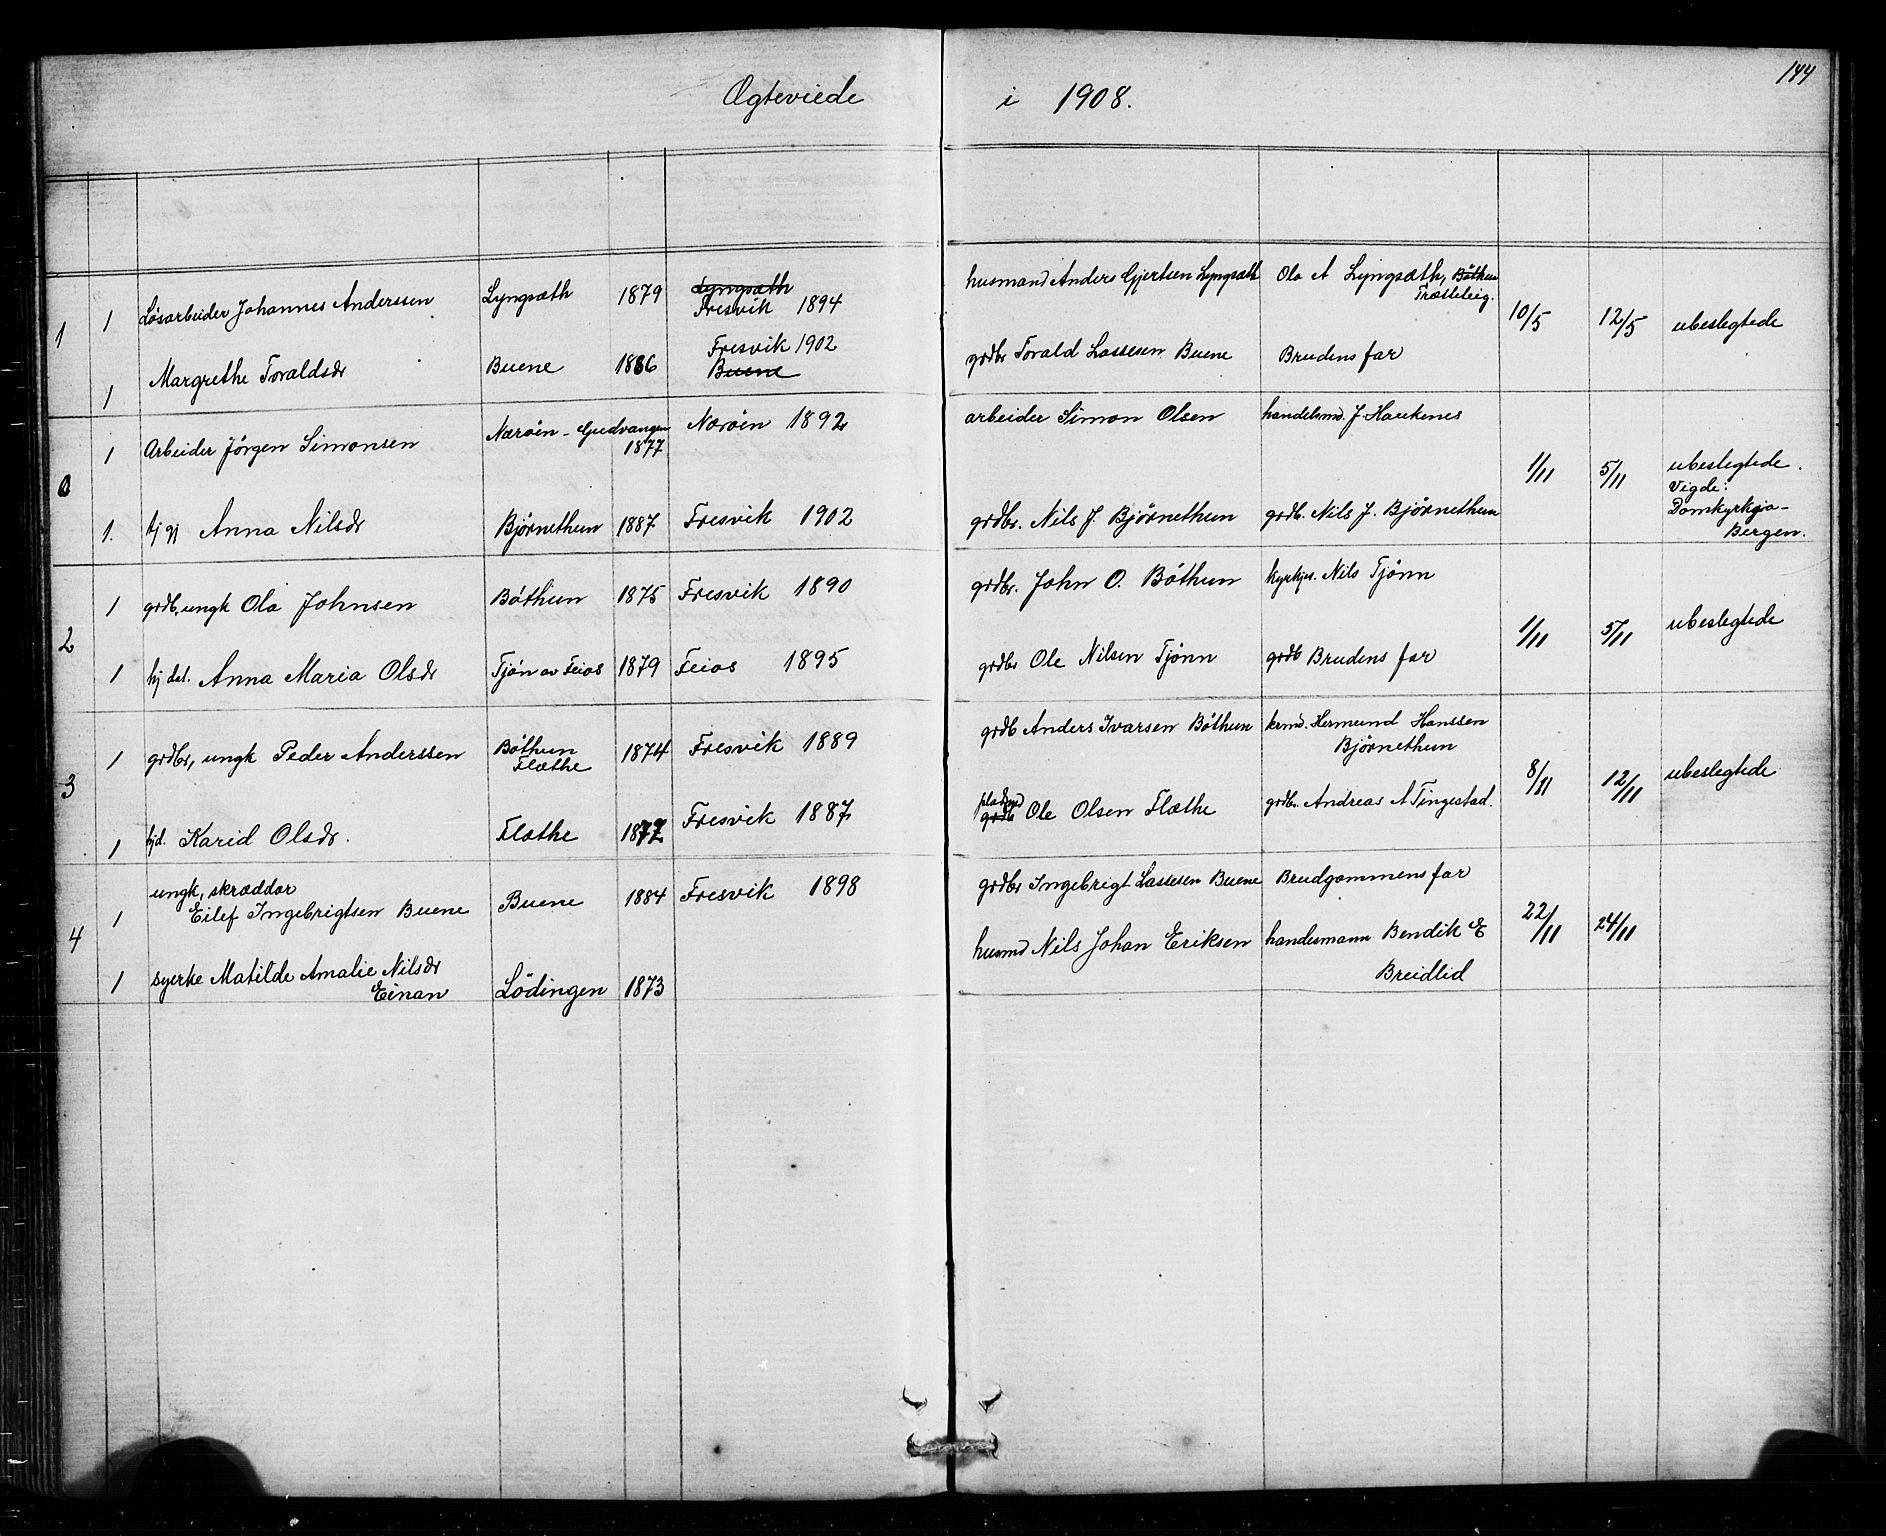 144
Ægteviede i 1908.
1 1 Løsarbeider Johannes Anderssen Lyngsæth 1879 Lyngsæth Fresvik 1894 husmand Anders Gjertsen Lyngsæth Ola A Lyngsæth, Bøthun Træsleteig. 10/5 12/5 ubeslegtede
1 Margrethe Toraldsdr Buene 1886 Fresvik 1902 Buene grdbr Torald Lassesen Buene Brudens far
0 1 Arbeider Jörgen Simonsen Nærøin - Gudvangen 1877 Nærøin 1892 arbeider Simon Olsen handelsmd. J. Haukenes 1/11 5/11 ubeslegtede.
Vigde:
Domkyrkja-
Bergen.
1. tj gj Anna Nilsdr Bjørnethun 1887 Fresvik 1902 grdbr. Nils J. Bjørnethun grdb. Nils J. Bjørnethun
2 1 grdb. ungk Ola Johnsen Bøthun 1875 Fresvik 1890 grdbr. John O. Bøthun kyrkjes. Nils Tjønn 1/11 5/11 ubeslegtede
1 hj dat. Anna Maria Olsdr Tjøn av Feios 1879 Feios 1895 grdbr Ole Nilsen Tjønn grdb Brudens far
3 1 grdbr, ungk Peder Anderssen Bøthun Flæthe 1874 Fresvik 1889 grdb Anders Ivarsen Bøthun Hermund Hanssen Bjørnethun 8/11 12/11 ubeslegtede
1 hjd. Karid Olsdr. Flæthe 1872 Fresvik 1887 pladsmd grdb Ole Olsen Flæthe grdbr. Andreas A Tingestad.
4 1 ungk, skræddar
Eilef Ingebrigtsen Buene Buene 1884 Fresvik 1898 grdbr Ingebrigt Lassesen Buene Brudgommens far 22/11 24/11
1 syerke Matilde Amalie Nilsdr
Einan Lödingen 1873 husmd Nils Johan Eriksen handesmann Bendik E
Breidlid